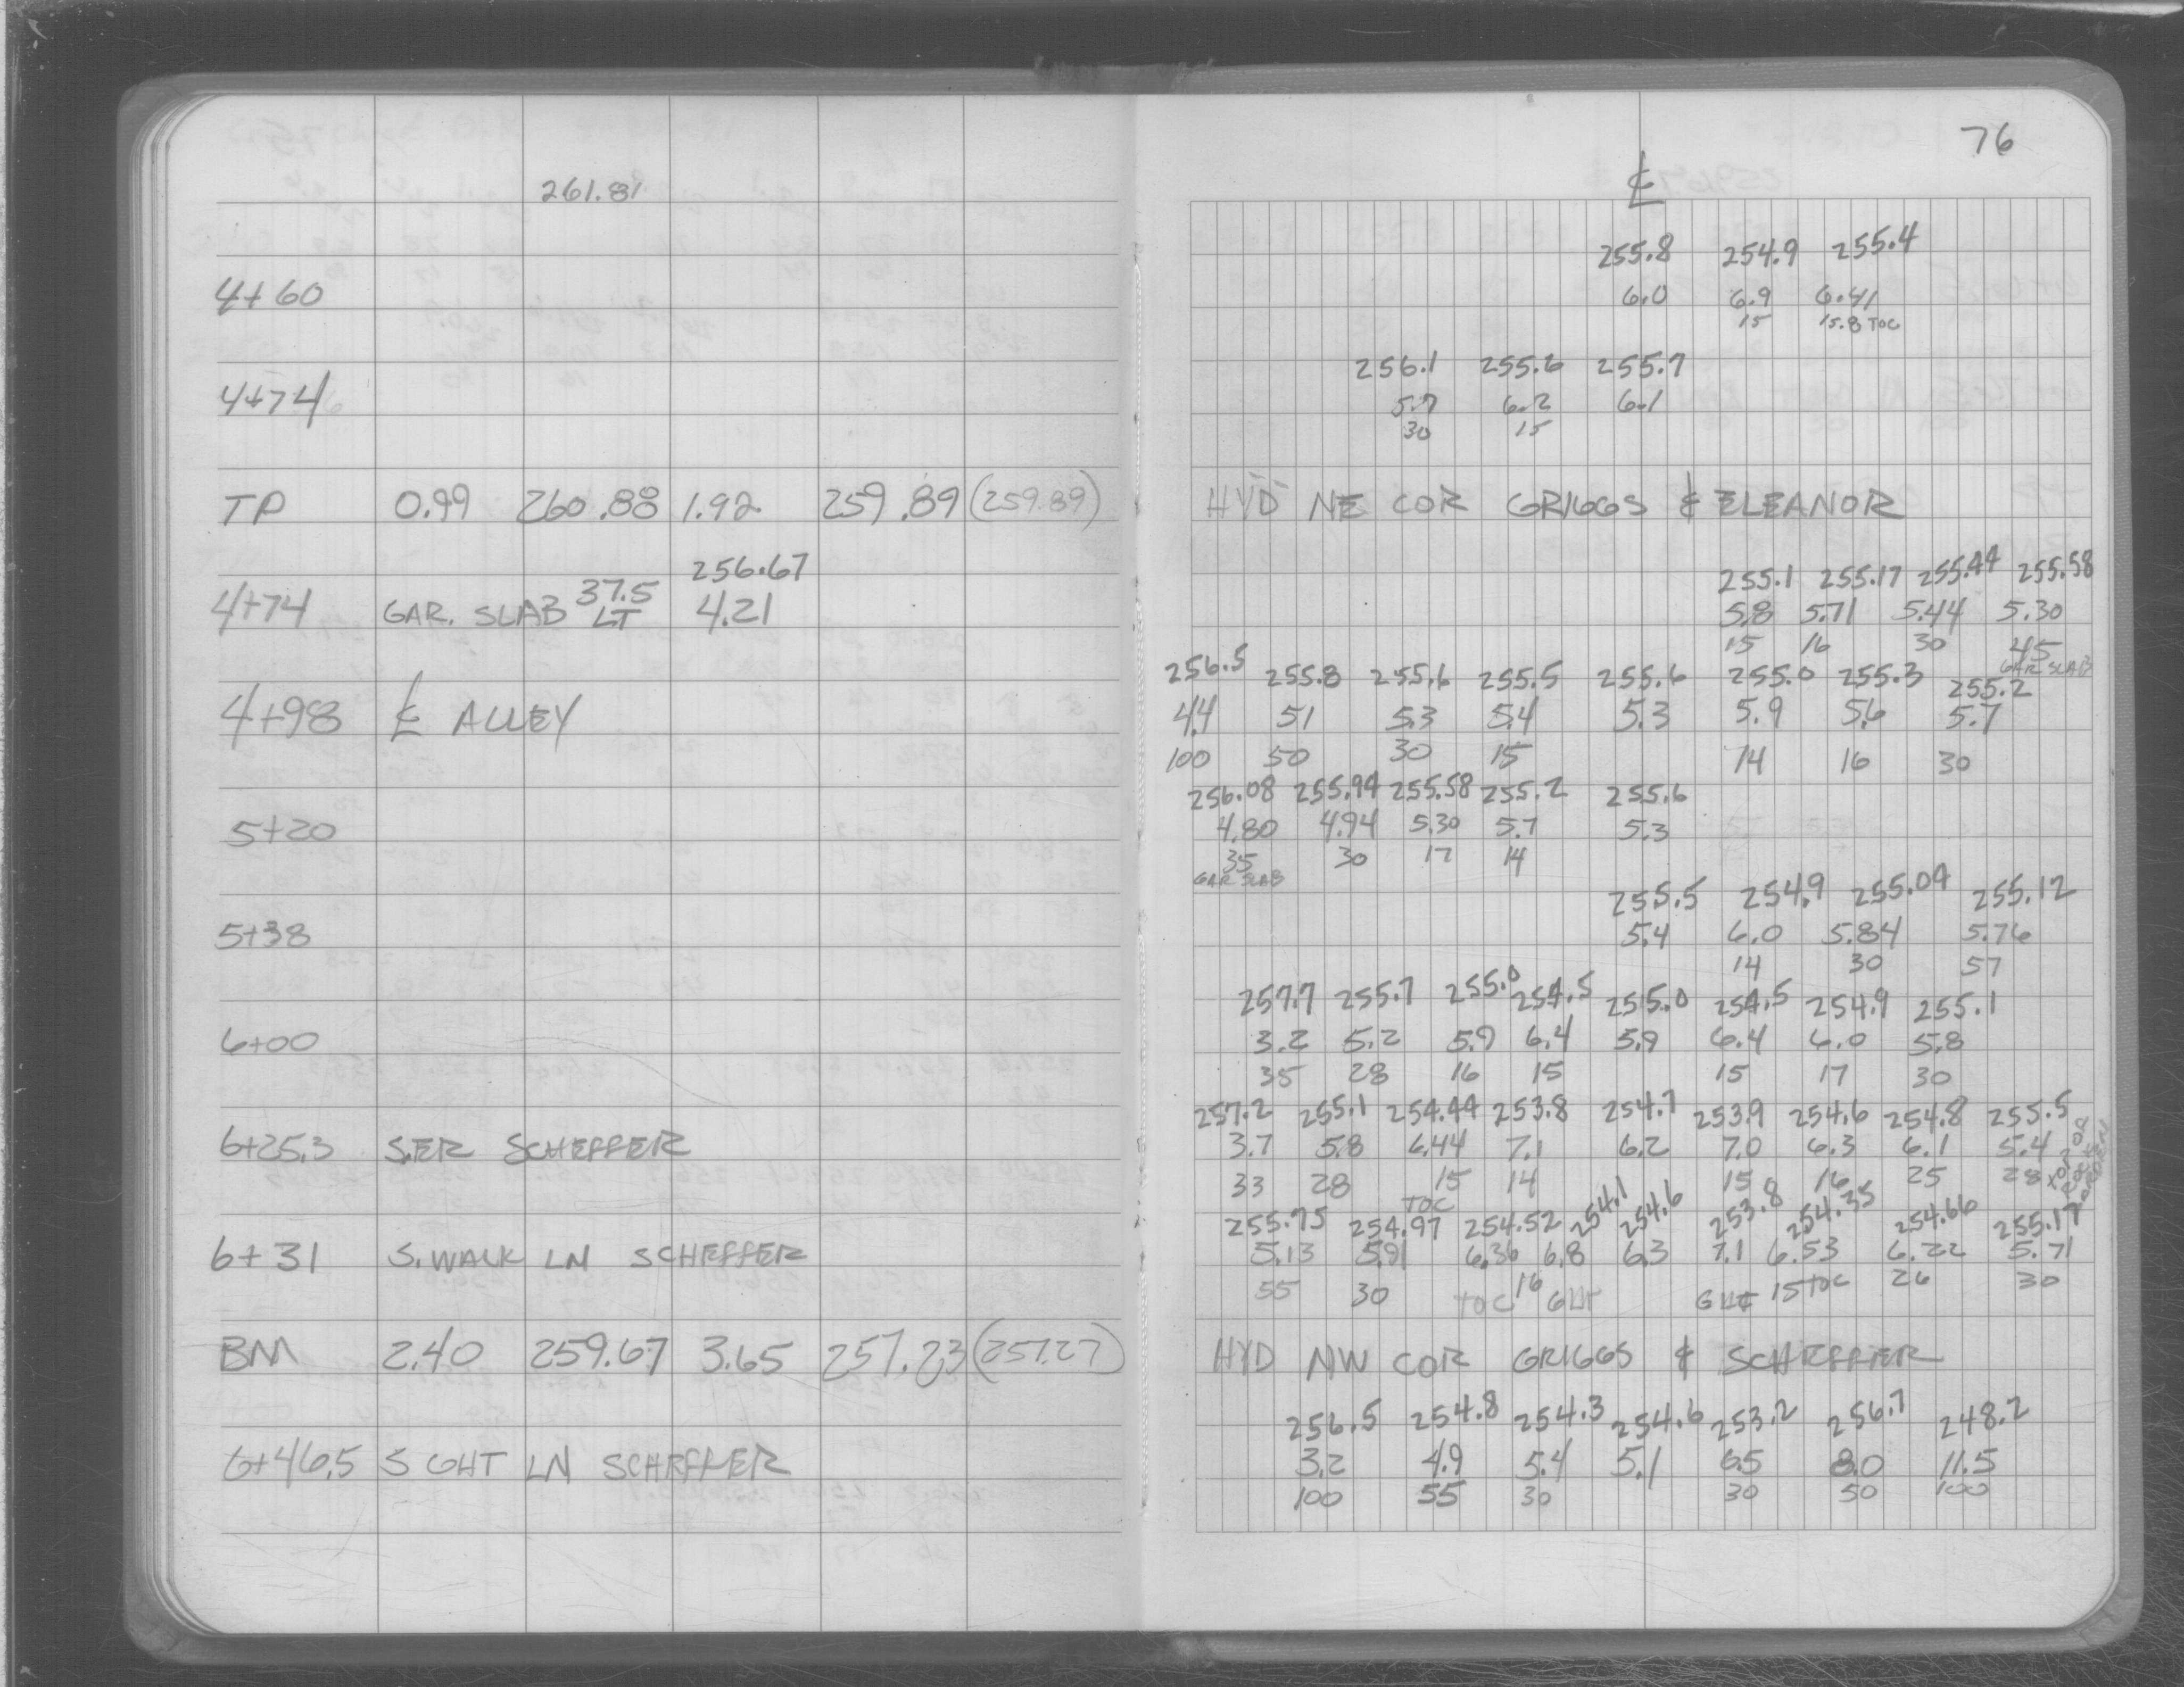 76
℄
261.81
255.8 254.9 255.4
4+60 6.0 6.9 6.41
15 15.8 TOC
256.1 255.6 255.7
4+74 5.7 6.2 6.1
30 15
TP 0.99 260.88 1.92 259.89 (259.89) HYD NE COR GRIGGS & ELEANOR
256.67 255.1 255.17 255.44 255.58
4+74 GAR. SLAB 37.5 LT 4.21 5.8 5.71 5.44 5.30
15 16 30 45
GAR SLAB
256.5 255.8 255.6 255.5 255.6 255.0 255.3 255.2
4+98 ℄ ALLEY 4.4 5.1 5.3 5.4 5.3 5.9 5.6 5.7
100 50 30 15 14 16 30
256.08 255.94 255.58 255.2 255.6
5+20 4.80 4.94 5.30 5.7 5.3
35 30 17 14
GAR SLAB
255.5 254.9 255.04 255.12
5+38 5.4 6.0 5.84 5.76
14 30 57
257.7 255.7 255.0 254.5 255.0 254.5 254.9 255.1
6+00 3.2 5.2 5.9 6.4 5.9 6.4 6.0 5.8
35 28 16 15 15 17 30
257.2 255.1 254.44 253.8 254.7 253.9 254.6 254.8 255.5
6+25.3 S.ER SCHEFFER 3.7 5.8 6.44 7.1 6.2 7.0 6.3 6.1 5.4
33 28 15 14 15 16 25 28 TOP OF ROCK GARDEN
TOC
255.75 254.97 254.52 254.1 254.6 253.8 254.35 254.66 255.17
6+31 S. WALK LN SCHEFFER 5.13 5.91 6.36 6.8 6.3 7.1 6.53 6.22 5.71
55 30 TOC 16 GUT GUT 15 TOC 26 30
BM 2.40 259.67 3.65 257.23 (257.27) HYD NW COR GRIGGS & SCHEFFER
256.5 254.8 254.3 254.6 253.2 256.7 248.2
6+46.5 S GUT LN SCHEFFER 3.2 4.9 5.4 5.1 6.5 8.0 11.5
100 55 30 30 50 100